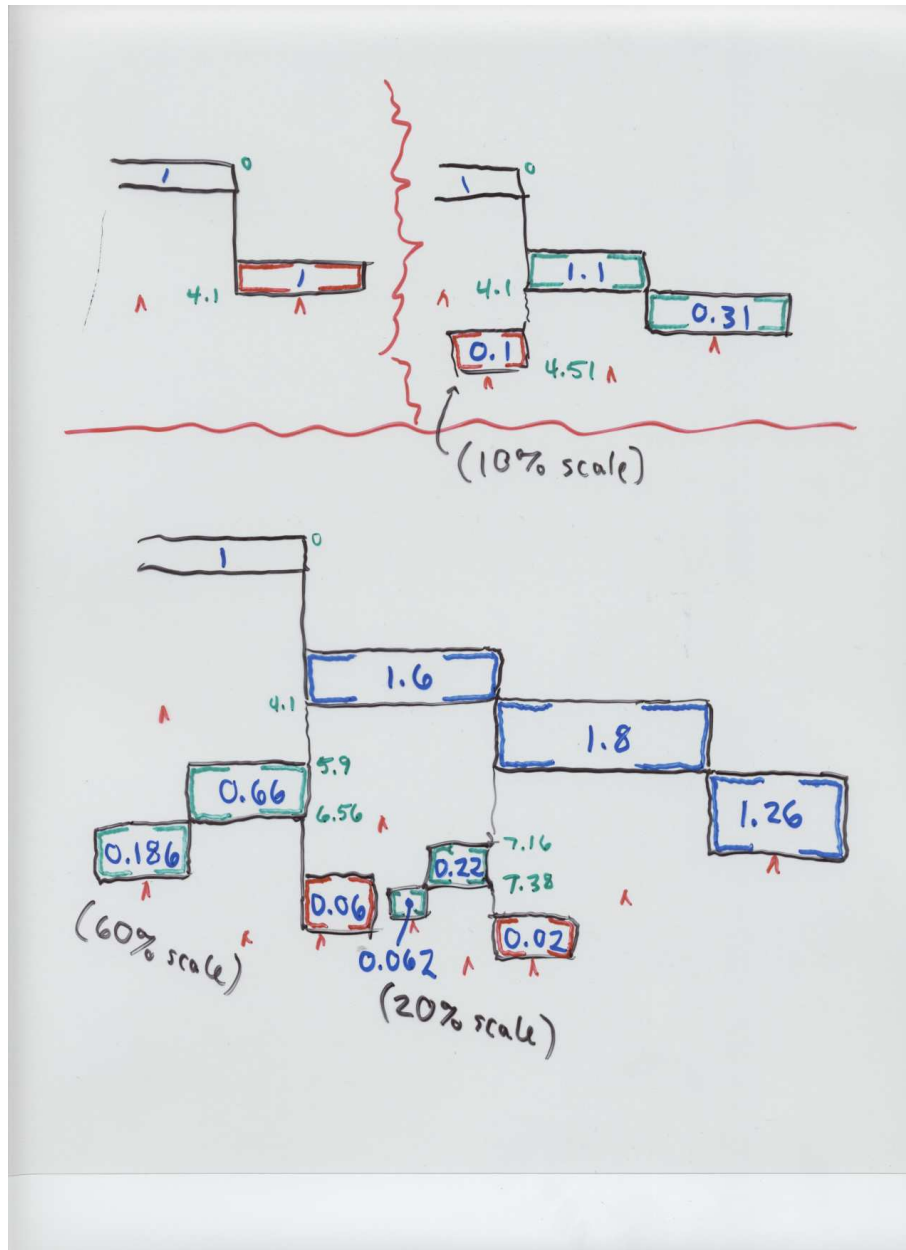 0
1
4.1
1
0
1
1.1
4.1
0.31
0.1
4.51
(10% scale)
0
1
1.6
4.1
1.8
5.9
0.66
6.56
1.26
0.186
7.16
0.22
7.38
0.06
0.02
0.062
(60% scale)
(20% scale)